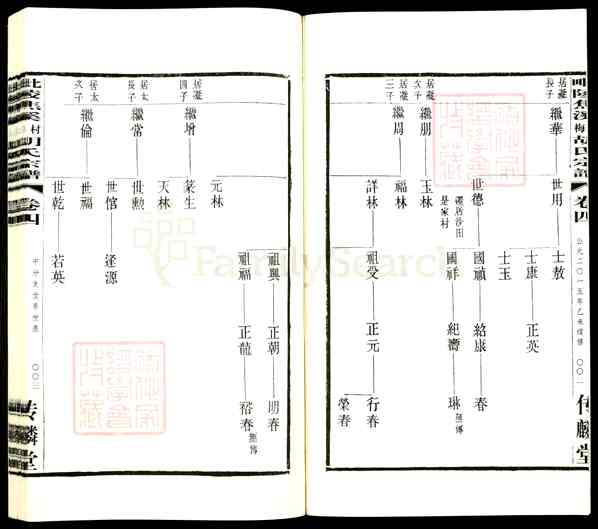 毗陵焦溪梅村胡氏宗譜
卷四
公元二〇一五年乙未續修
〇〇一
傳麟堂
居凝長子
繼華 世用 士敖
士康 正英
士玉
世德 國禎 紹康 春
遷居沙田是家村
國祥 紀壽 琳 無傳
居凝次子
繼朋 玉林
居凝三子
繼周 福林
詳林 祖受 正元 行春
榮春
居凝四子
繼增 元林
萊生 祖興 正朝 明春
祖福 正龍 裕春 無傳
天林
居太長子
繼常 世勳
世倌 逢源
居太次子
繼倫 世福
世乾 若英
毗陵焦溪梅村胡氏宗譜
卷四
〇〇二
傳麟堂
FamilySearch